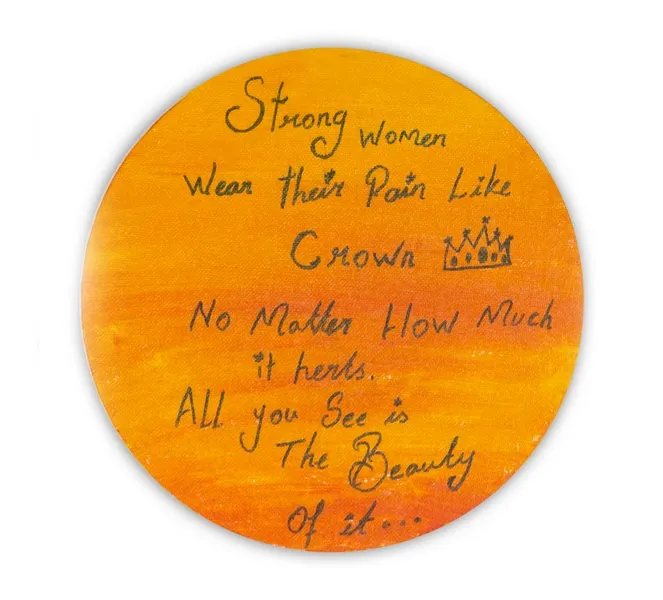 Strong women
Wear their Pain Like
Crown
No Matter How Much
it herts.
All you See is
The Beauty
Of it...